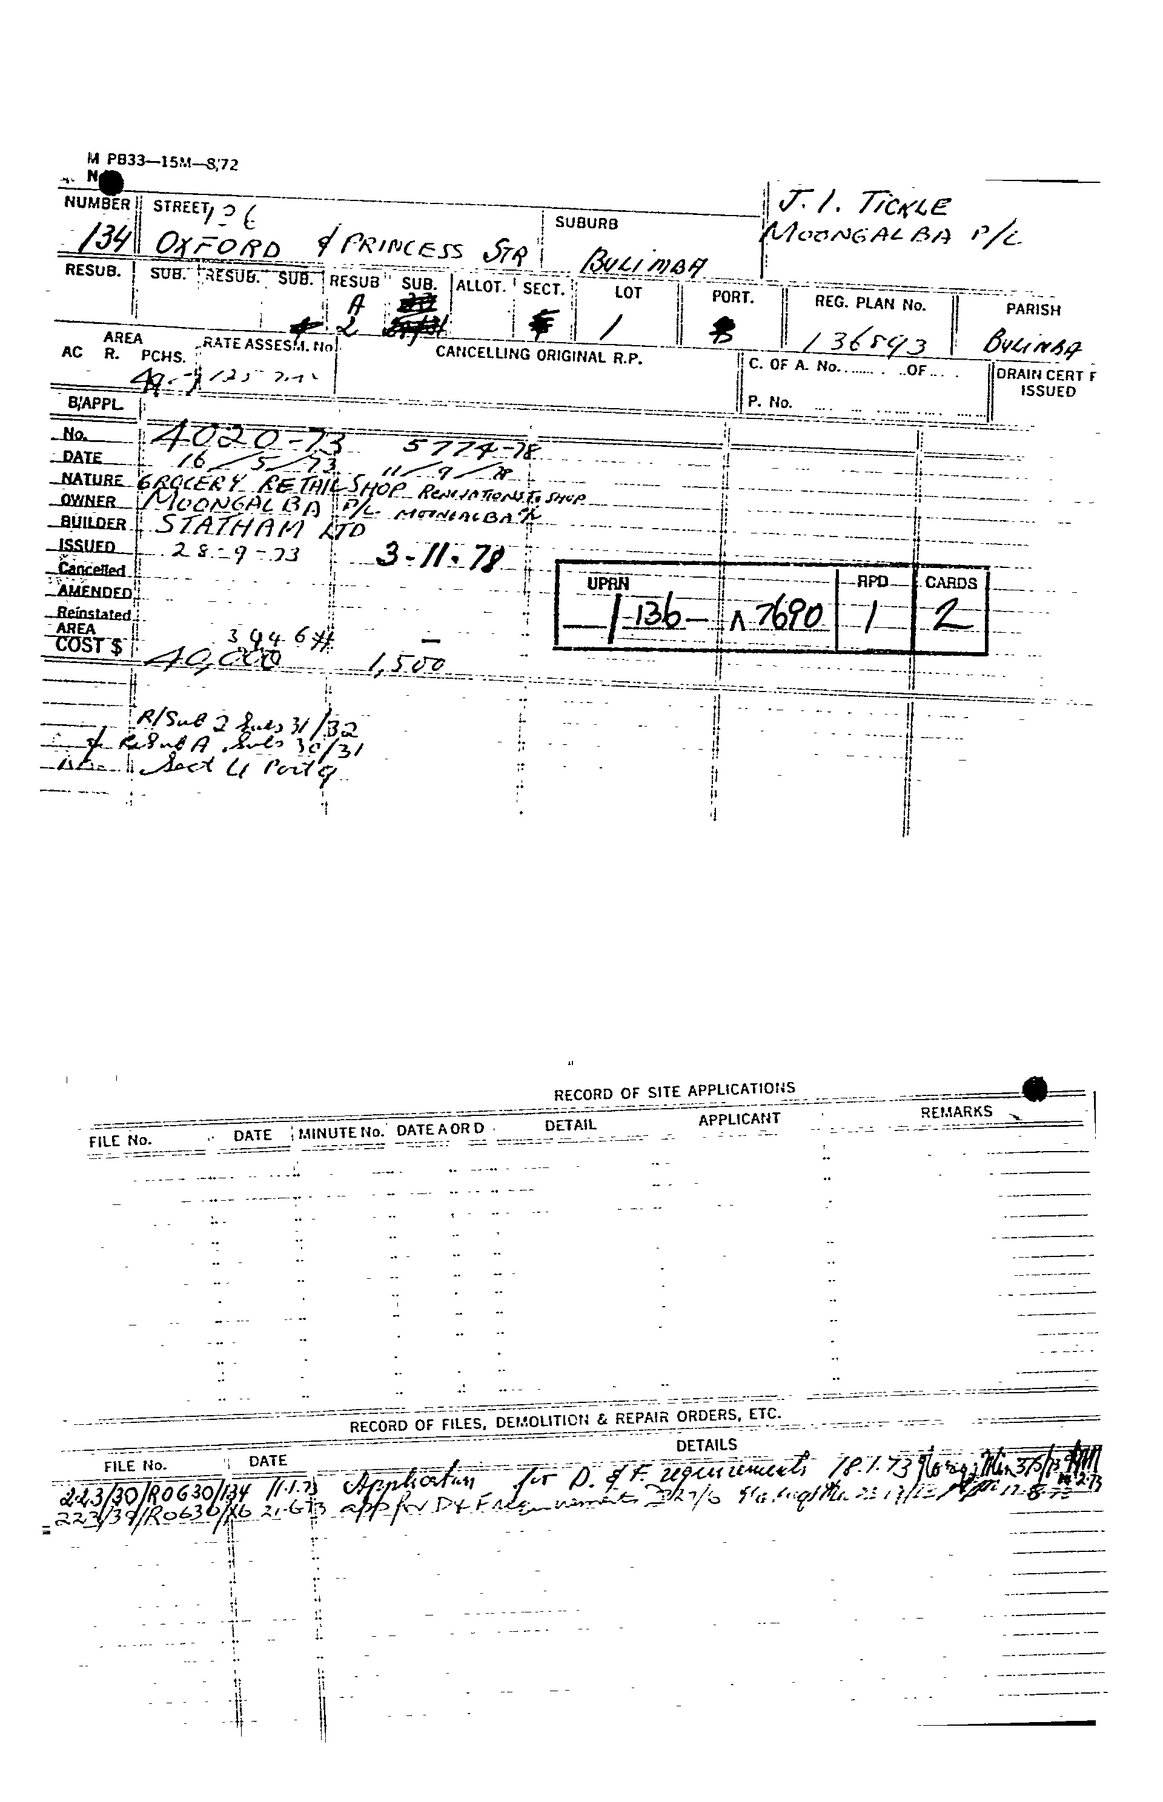 M P833—15M—8/72
J. I. TICKLE
NUMBER STREET 136 SUBURB
MOONGALBA P/L
134 OXFORD & PRINCESS STR BULIMBA
RESUB. SUB. RESUB. SUB. RESUB SUB. ALLOT. SECT. LOT PORT. REG. PLAN No. PARISH
A
2 1 136593 BULIMBA
AREA RATE ASSESM. No CANCELLING ORIGINAL R.P. C. OF A. No. OF DRAIN CERT
AC R. PCHS. ISSUED
P. No.
B/APPL.
No. 4020-73 5774-78
DATE 16/5/73 11/9/78
NATURE GROCERY RETAIL SHOP RENOVATIONS TO SHOP
OWNER MOONGALBA P/L MOONGALBA P/L
BUILDER STATHAM LTD
ISSUED 28-9-73 3-11-78
Cancelled
AMENDED
Reinstated
UPRN RPD CARDS
136— 7690 1 2
AREA 3946 #
COST $ 40,000 — 1,500
R/Sub 2 Subs 31/32
& ReSub A Subs 30/31
Sect 4 Port 9
RECORD OF SITE APPLICATIONS
FILE No. DATE MINUTE No. DATE A OR D DETAIL APPLICANT REMARKS
RECORD OF FILES, DEMOLITION & REPAIR ORDERS, ETC.
FILE No. DATE DETAILS
223/30/R0630/134 11.1.73 Application for D. & F. requirements 18.1.73
223/39/R0630/ 21.6.73 app for D & F requirements